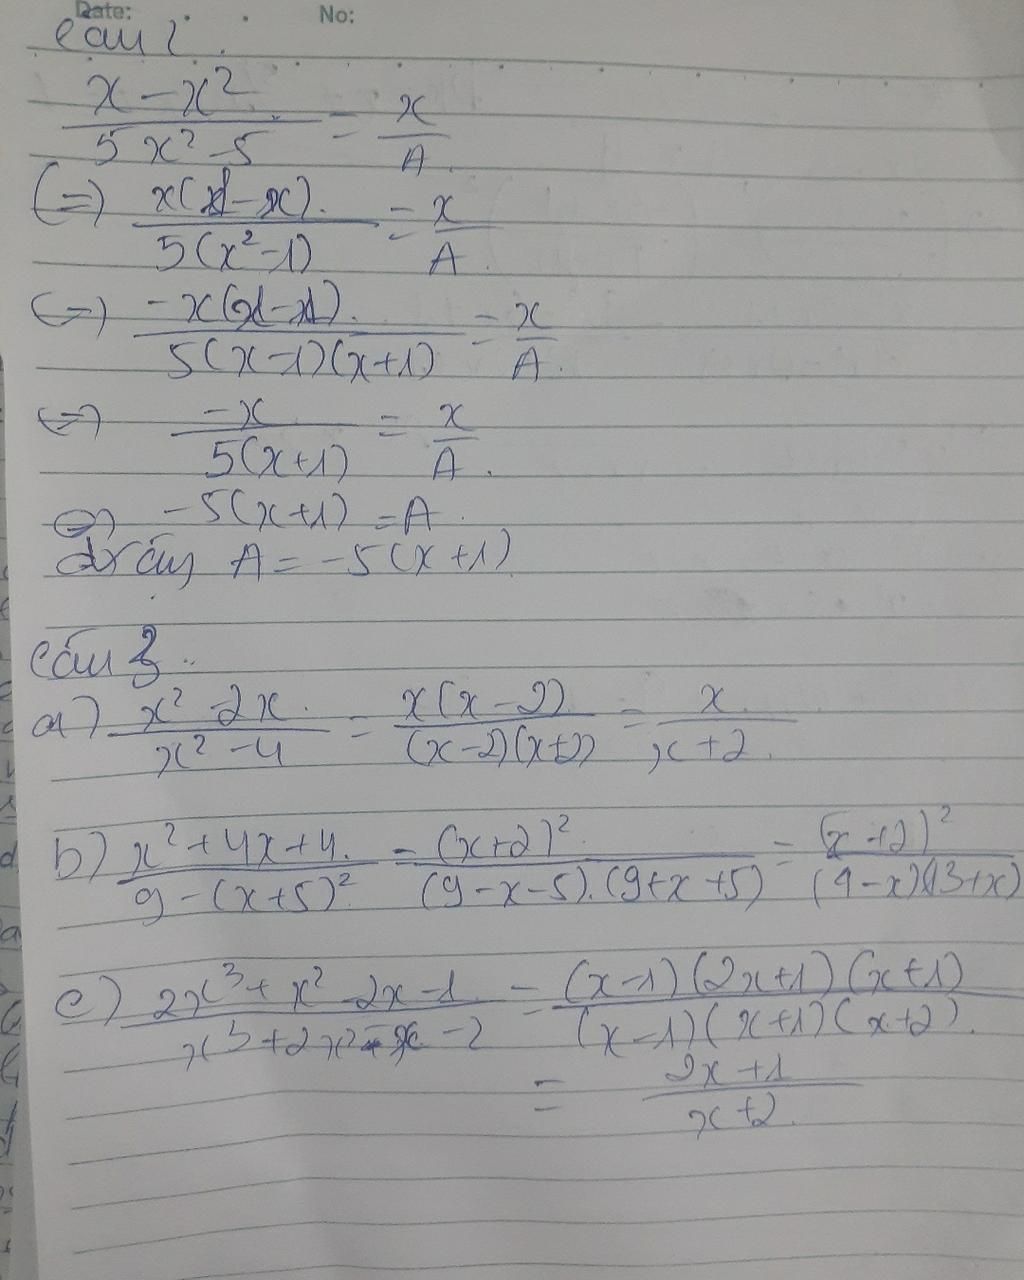 Date: No:
Câu 2.
x - x² / 5x² - 5 = x / A
(=) x(1 - x) / 5(x² - 1) = x / A
(=) -x(x - 1) / 5(x - 1)(x + 1) = x / A
(=) -x / 5(x + 1) = x / A
(=) -5(x + 1) = A
Vậy A = -5(x + 1)
Câu 3
a) x² - 2x / x² - 4 = x(x - 2) / (x - 2)(x + 2) = x / x + 2
b) x² + 4x + 4 / 9 - (x + 5)² = (x + 2)² / (9 - x - 5).(9 + x + 5) = (x + 2)² / (4 - x)(13 + x)
c) 2x³ + x² - 2x - 1 / x³ + 2x² - x - 2 = (x - 1)(2x + 1)(x + 1) / (x - 1)(x + 1)(x + 2)
= 2x + 1 / x + 2